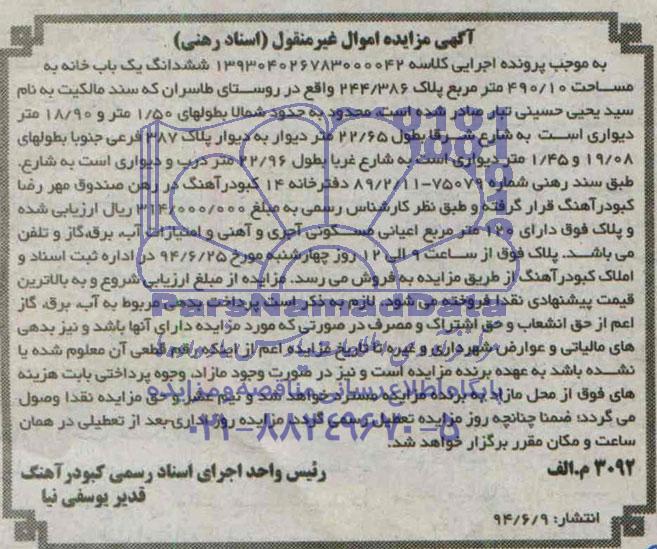 آگهی مزایده اموال غیرمنقول (اسناد رهنی)
به موجب پرونده اجرایی کلاسه ۱۳۹۳۰۴۰۲۶۷۸۳۰۰۰۰۴۲ ششدانگ یک باب خانه به
مساحت ۴۹۰/۱۰ متر مربع پلاک ۲۴۴/۳۸۶ واقع در روستای طاسران که سند مالکیت به نام
سید یحیی حسینی تبار صادر شده است. محدود به حدود شمالا بطولهای ۱/۵۰ متر و ۱۸/۹۰ متر
دیواری است به شارع شرقا بطول ۲۲/۶۵ متر دیوار به دیوار پلاک ۳۸۷ فرعی جنوبا بطولهای
۱۹/۰۸ و ۱/۴۵ متر دیواری است به شارع غربا بطول ۲۲/۹۶ متر درب و دیواری است به شارع.
طبق سند رهنی شماره ۷۵۰۷۹-۸۹/۲/۱۱ دفترخانه ۱۴ کبودرآهنگ در رهن صندوق مهر رضا
کبودرآهنگ قرار گرفته و طبق نظر کارشناس رسمی به مبلغ ۳۱۴/۰۰۰/۰۰۰ ریال ارزیابی شده
و پلاک فوق دارای ۱۲۰ متر مربع اعیانی مسکونی آجری و آهنی و امتیازات آب، برق،گاز و تلفن
می باشد. پلاک فوق از ساعت ۹ الی ۱۲ روز چهارشنبه مورخ ۹۴/۶/۲۵ در اداره ثبت اسناد و
املاک کبودرآهنگ از طریق مزایده به فروش می رسد. مزایده از مبلغ ارزیابی شروع و به بالاترین
قیمت پیشنهادی نقدا فروخته می شود. لازم به ذکر است پرداخت بدهی مربوط به آب، برق، گاز
اعم از حق انشعاب و حق اشتراک و مصرف در صورتی که مورد مزایده دارای آنها باشد و نیز بدهی
های مالیاتی و عوارض شهرداری و غیره تا تاریخ مزایده اعم از اینکه رقم قطعی آن معلوم شده یا
نشده باشد به عهده برنده مزایده است و نیز در صورت وجود مازاد، وجوه پرداختی بابت هزینه
های فوق از محل مازاد به برنده مزایده مسترد خواهد شد و نیم عشر و حق مزایده نقدا وصول
می گردد؛ ضمنا چنانچه روز مزایده تعطیل رسمی گردد، مزایده روز اداری بعد از تعطیلی در همان
ساعت و مکان مقرر برگزار خواهد شد.
۳۰۹۲ م.الف
رئیس واحد اجرای اسناد رسمی کبودرآهنگ
قدیر یوسفی نیا
انتشار: ۹۴/۶/۹
ParsNamadData
پایگاه اطلاع رسانی مناقصه و مزایده
۰۲۱-۸۸۳۴۹۶۷۰-۵